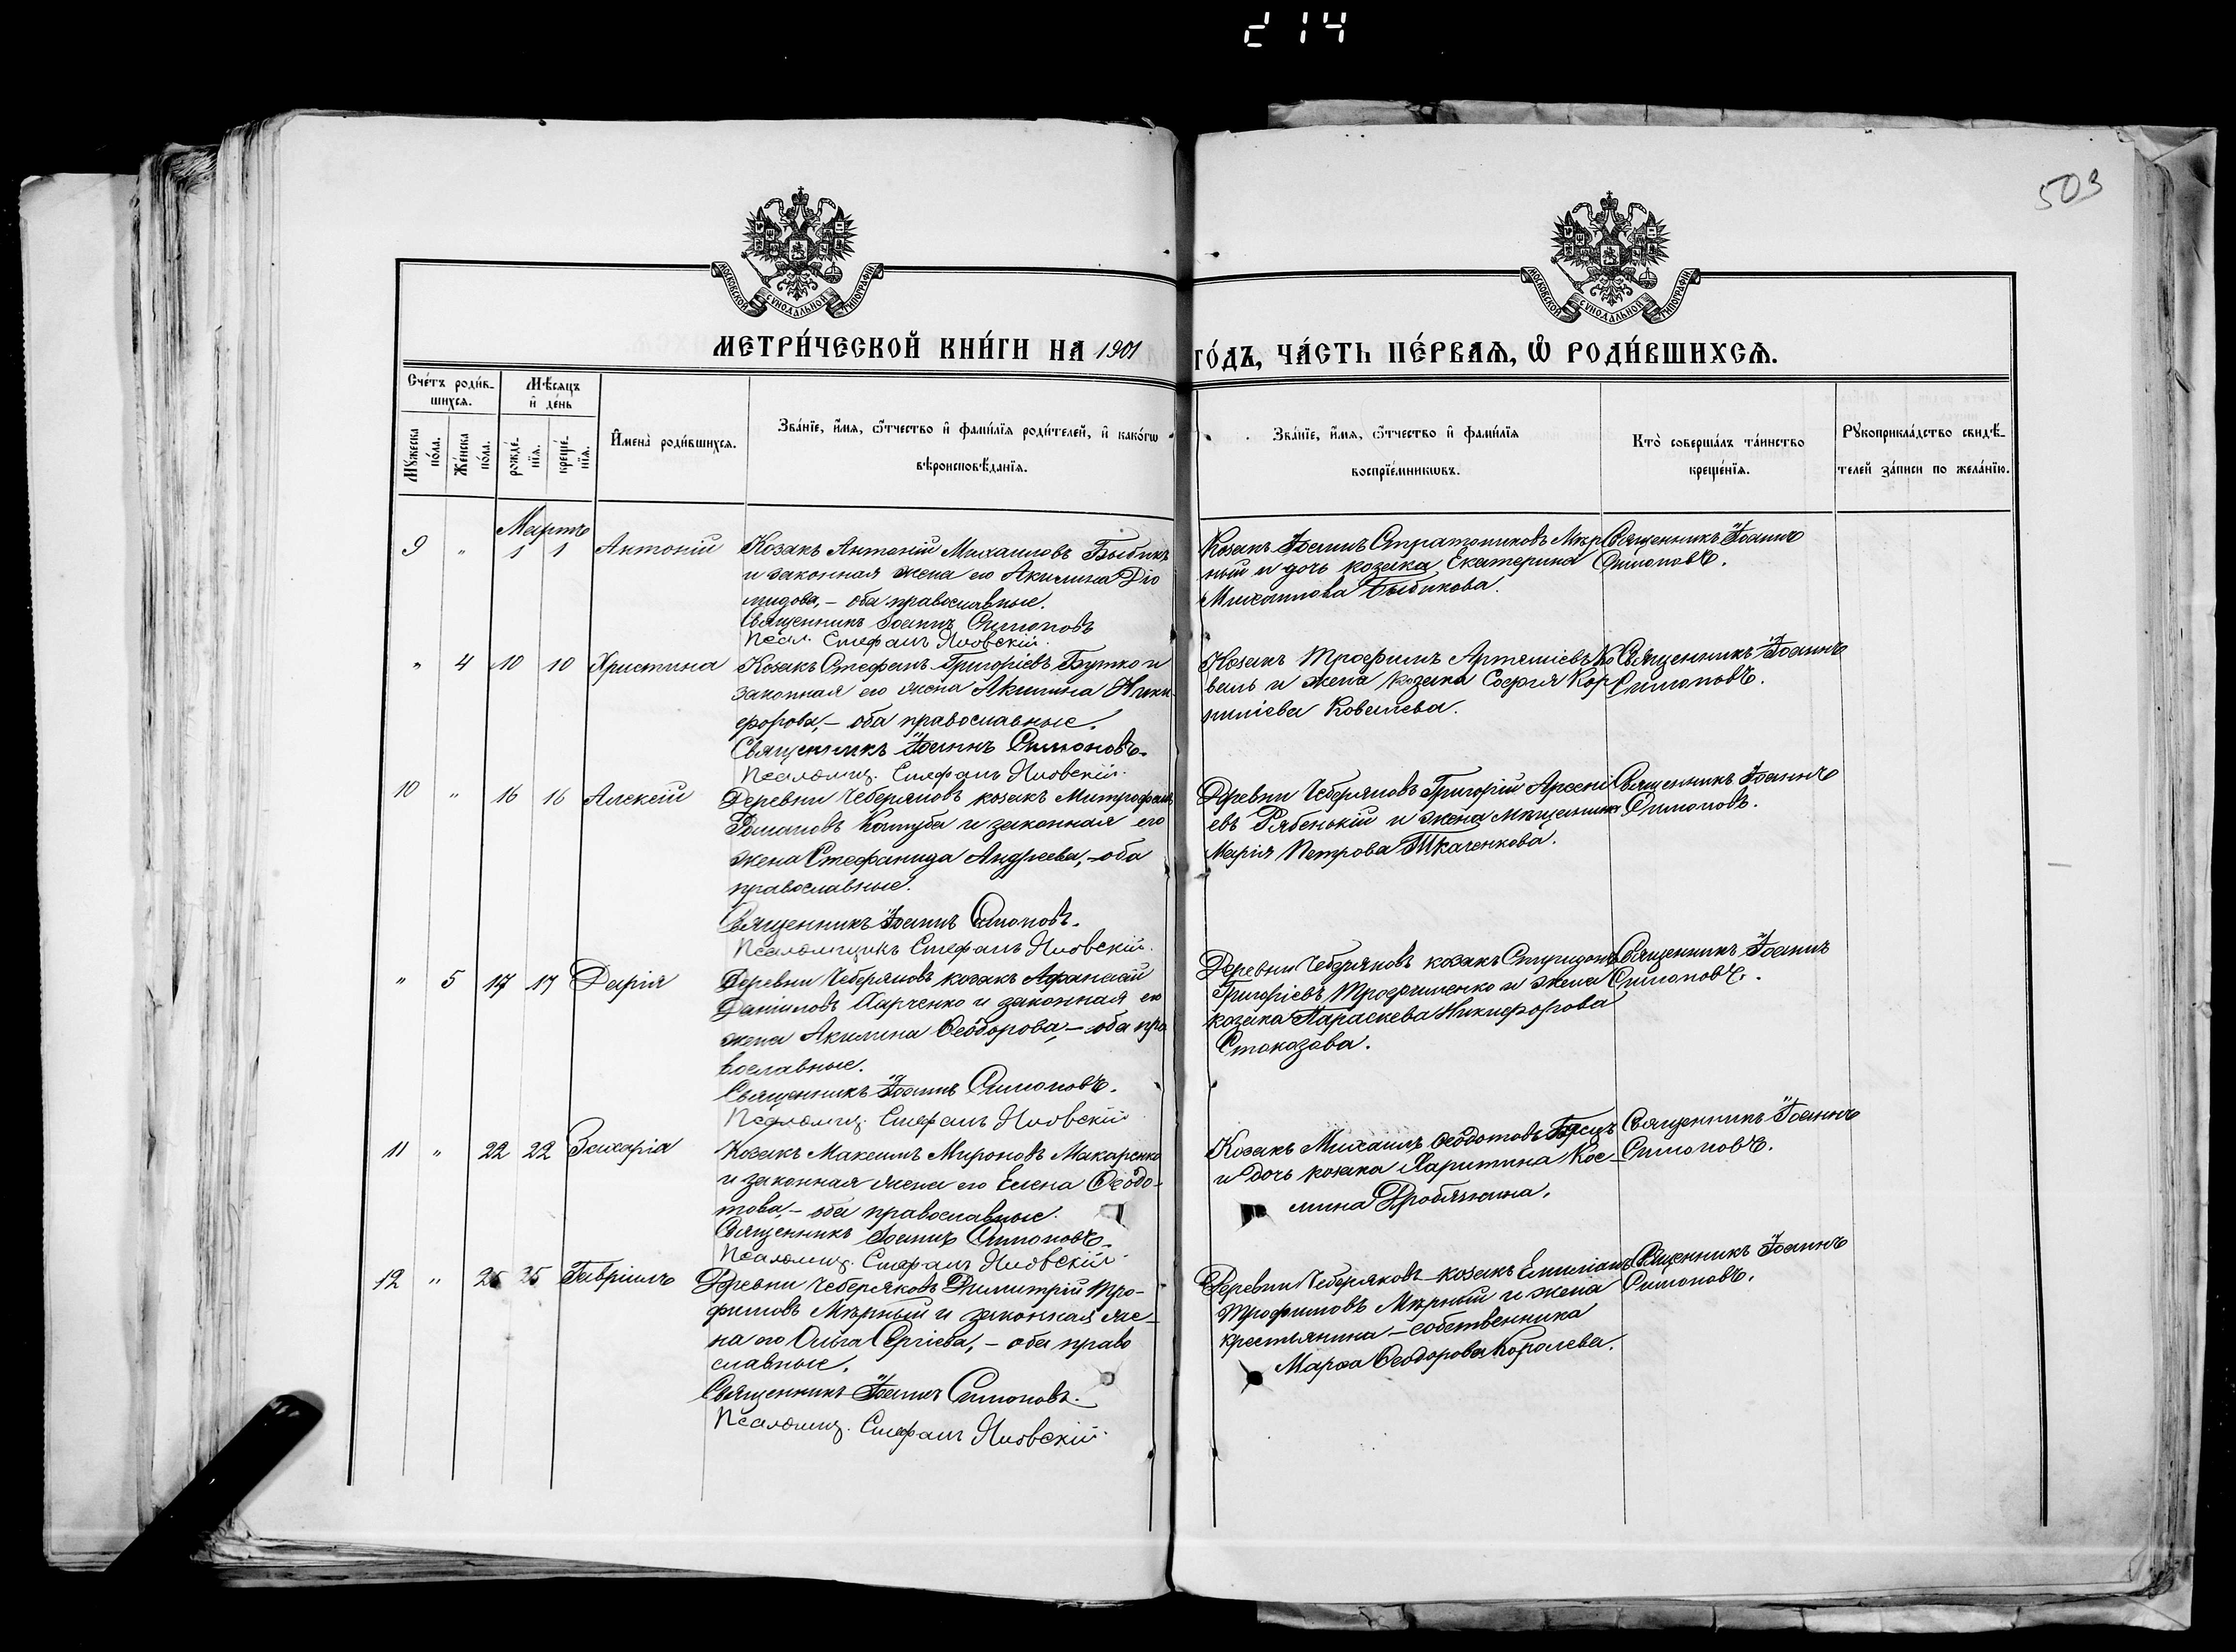 214
503
МОСКОВСКОЙ СѴНОДАЛЬНОЙ ТИПОГРАФІИ
МОСКОВСКОЙ СѴНОДАЛЬНОЙ ТИПОГРАФІИ
МЕТРИ́ЧЕСКОЙ КНИ́ГИ НА 1901 ГО́ДЪ, ЧА́СТЬ ПЕ́РВАѦ, Ѽ РОДИ́ВШИХСѦ.
Сче́тъ роди́в-
шихсѧ.
Мѣ́сяцъ
и҆ де́нь
Мꙋ́жеска
по́ла.
Же́нска
по́ла.
рожде́-
нїѧ.
креще́-
нїѧ.
И҆мена̀ роди́вшихсѧ.
Зва́нїе, и҆́мѧ, ѻ҆́тчество и҆ фами́лїѧ роди́телей, и҆ како́гѡ
вѣроисповѣ́данїѧ.
Зва́нїе, и҆́мѧ, ѻ҆́тчество и҆ фами́лїѧ
воспрїе́мникѡвъ.
Кто̀ соверша́лъ та́инство
креще́нїѧ.
Рꙋкоприкла́дство свидѣ́-
телей за́писи по жела́нїю.
Мартъ
9 " 1 1 Антоній
Козакъ Антоній Михаиловъ Быбикъ
и законная жена его Акилина Діо
мидова, – оба православные.
Священникъ Іоаннъ Симоновъ
Псал. Стефанъ Яновскій.
Козакъ Іоаннъ Стратониковъ Мир
ный и дочь козака Екатерина
Михаилова Быбикова.
Священникъ Іоаннъ
Симоновъ.
" 4 10 10 Христина
Козакъ Стефанъ Григоріевъ Бутко и
законная его жена Акилина Ники-
форова, – оба православные.
Священникъ Іоаннъ Симоновъ.
Псаломщ. Стефанъ Яновскій.
Козакъ Трофимъ Артеміевъ Ко
валь и жена козака Софія Кор
ниліева Ковалева.
Священникъ Іоаннъ
Симоновъ.
10 " 16 16 Алексій
Деревни Чеберяковъ козакъ Митрофанъ
Романовъ Колтуба и законная его
жена Стефанида Андреева, – оба
православные.
Священникъ Іоаннъ Симоновъ.
Псаломщикъ Стефанъ Яновскій.
Деревни Чеберяковъ Григорій Арсені
евъ Рябенькій и жена мѣщанина
Марія Петрова Ткаченкова.
Священникъ Іоаннъ
Симоновъ.
" 5 17 17 Дарія
Деревни Чеберяковъ козакъ Афанасій
Даніиловъ Харченко и законная его
жена Акилина Ѳеодорова, – оба пра
вославные.
Священникъ Іоаннъ Симоновъ.
Псаломщ. Стефанъ Яновскій
Деревни Чеберяковъ козакъ Спиридонъ
Григоріевъ Трофименко и жена
козака Параскева Никифорова
Стоказова.
Священникъ Іоаннъ
Симоновъ.
11 " 22 22 Захарія
Козакъ Максимъ Мироновъ Макаренко
и законная жена его Елена Ѳеодо-
това, – оба православные.
Священникъ Іоаннъ Симоновъ.
Псаломщ. Стефанъ Яновскій.
Козакъ Михаилъ Ѳеодотовъ
и дочь козака Харитина Кос-
мина Дробязкина.
Священникъ Іоаннъ
Симоновъ.
12 " 25 25 Гавріилъ
Деревни Чеберяковъ Димитрій Тро-
фимовъ Мирный и законная же-
на его Ольга Сергіева, – оба право
славные.
Священникъ Іоаннъ Симоновъ.
Псаломщ. Стефанъ Яновскій.
Деревни Чеберяковъ козакъ Емиліанъ
Трофимовъ Мирный и жена
крестьянина – собственника
Марѳа Ѳеодорова Королева.
Священникъ Іоаннъ
Симоновъ.